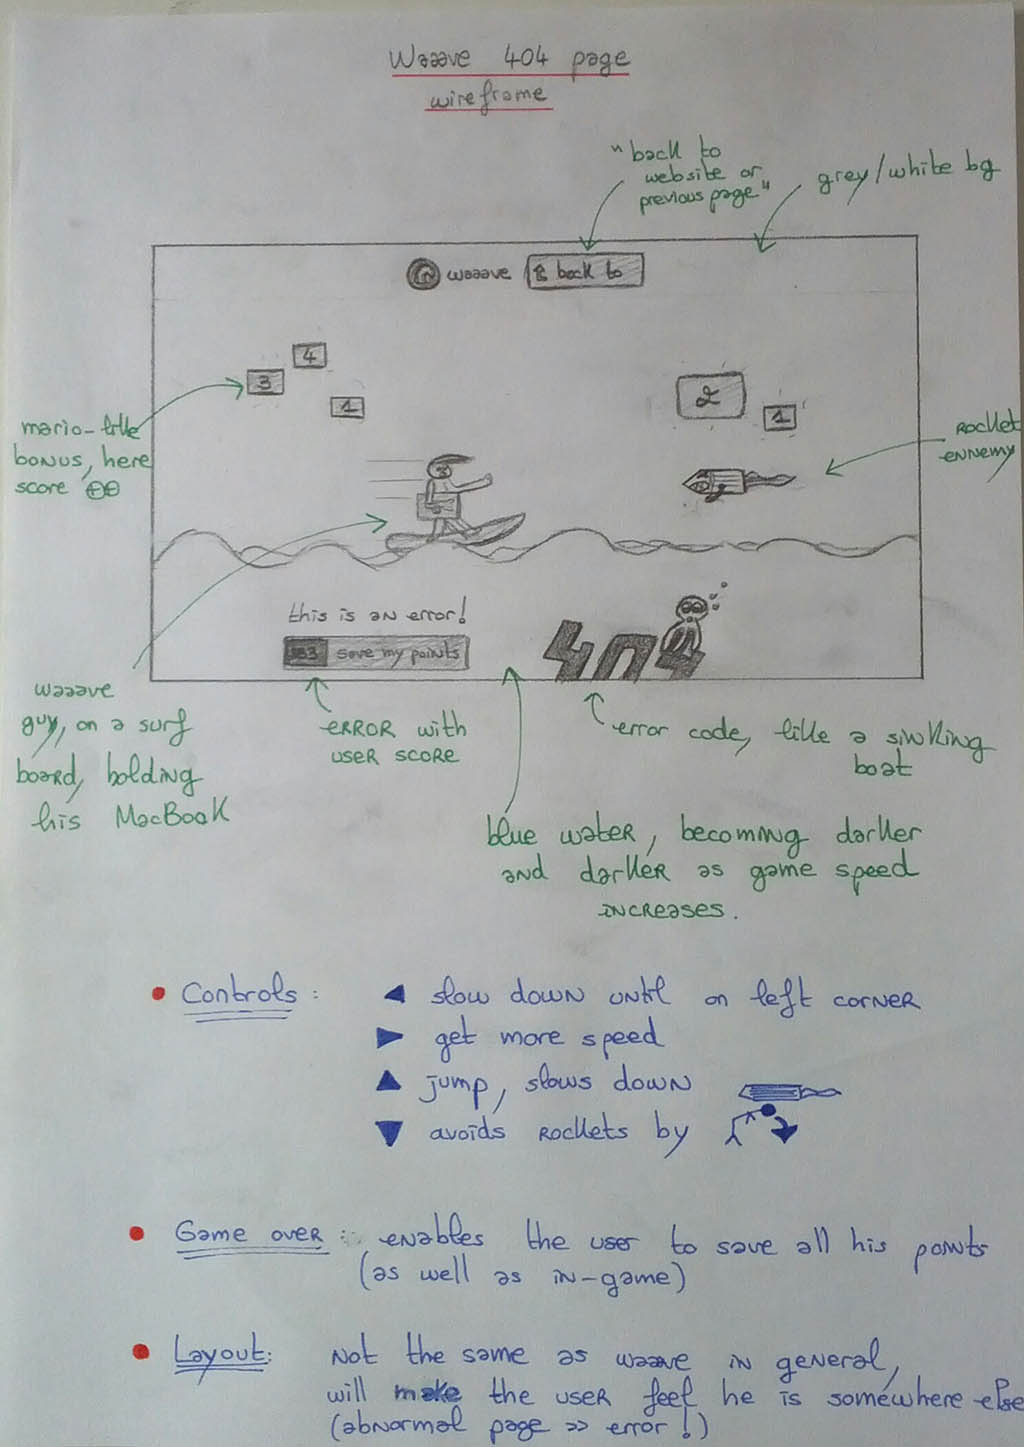 Waaave 404 page
wireframe
"back to
website or
previous page"
grey/white bg
waaave
back to
4
3
1
2
1
mario-like
bonus, here
score
rocket
ennemy
this is an error!
save my points
404
waaave
guy, on a surf
board, holding
his MacBook
error with
user score
error code, like a sinking
boat
blue water, becoming darker
and darker as game speed
increases.
• Controls :
◀ slow down until on left corner
▶ get more speed
▲ jump, slows down
▼ avoids rockets by
• Game over : enables the user to save all his points
(as well as in-game)
• Layout: Not the same as waave in general,
will make the user feel he is somewhere else
(abnormal page >> error !)